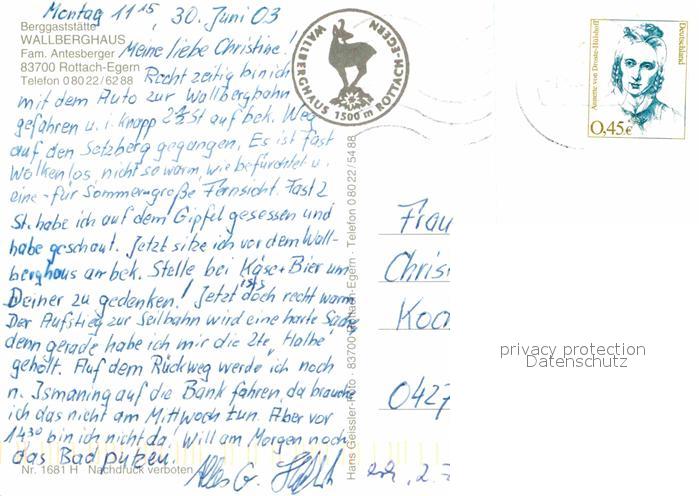 Montag 11 15, 30. Juni 03
Berggaststätte
WALLBERGHAUS
Fam. Antesberger
83700 Rottach-Egern
Telefon 0 80 22 / 62 88
Meine liebe Christine!
Recht zeitig bin ich
mit dem Auto zur Wallbergbahn
gefahren u. i. knapp 2 1/2 St auf bek. Weg
auf den Setzberg gegangen. Es ist fast
wolkenlos, nicht so warm, wie befürchtet u.
eine - für Sommer - große Fernsicht. Fast 2
St. habe ich auf dem Gipfel gesessen und
habe geschaut. Jetzt sitze ich vor dem Wall-
berghaus an bek. Stelle bei Käse + Bier um
Deiner zu gedenken! Jetzt ists doch recht warm
Der Aufstieg zur Seilbahn wird eine harte Sache
denn gerade habe ich mir die 2te "Halbe"
geholt. Auf dem Rückweg werde ich noch
n. Ismaning auf die Bank fahren, da brauche
ich das nicht am Mittwoch tun. Aber vor
14 30 bin ich nicht da! Will am Morgen noch
das Bad putzen. Alles G.
Nr. 1681 H Nachdruck verboten
WALLBERGHAUS ROTTACH-EGERN
1500 m
Hans Geissler-Foto · 83700 Rottach-Egern · Telefon 0 80 22 / 54 88
Annette von Droste-Hülshoff
Deutschland
0,45€
Frau
Chris
Koc
0427
privacy protection
Datenschutz